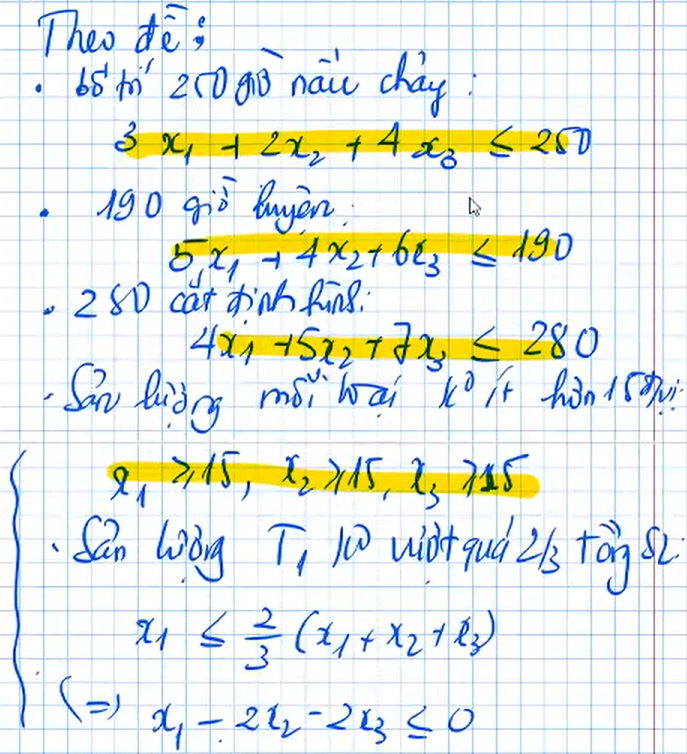 Theo đề:
• bố trí 250 giờ nấu chảy:
3x₁ + 2x₂ + 4x₃ ≤ 250
• 190 giờ luyện:
5x₁ + 4x₂ + 6x₃ ≤ 190
• 280 cắt định hình:
4x₁ + 5x₂ + 7x₃ ≤ 280
- Sản lượng mỗi loại k⁰ ít hơn 15 đvị
x₁ ≥ 15, x₂ ≥ 15, x₃ ≥ 15
• Sản lượng T₁ k⁰ vượt quá 2/3 tổng SL
x₁ ≤ 2/3 (x₁ + x₂ + x₃)
(=) x₁ - 2x₂ - 2x₃ ≤ 0